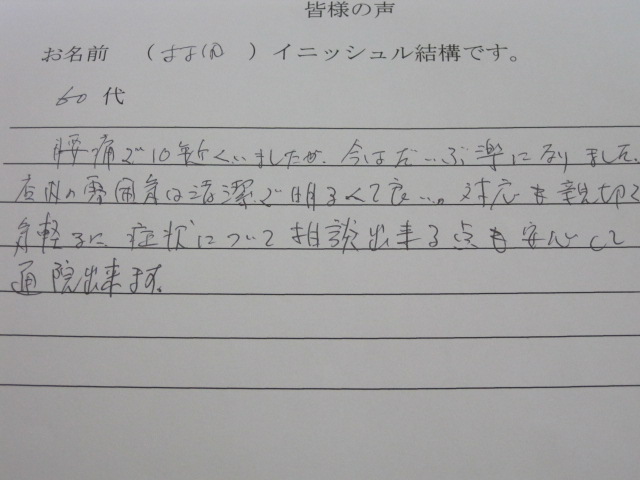 皆様の声
お名前 ( ) イニッシュル結構です。
60代
腰痛で10年近くいましたが、今はだいぶ楽になりました。
店内の雰囲気は清潔で明るくて良い。対応も親切で
気軽に症状について相談出来る点も安心して
通院出来ます。